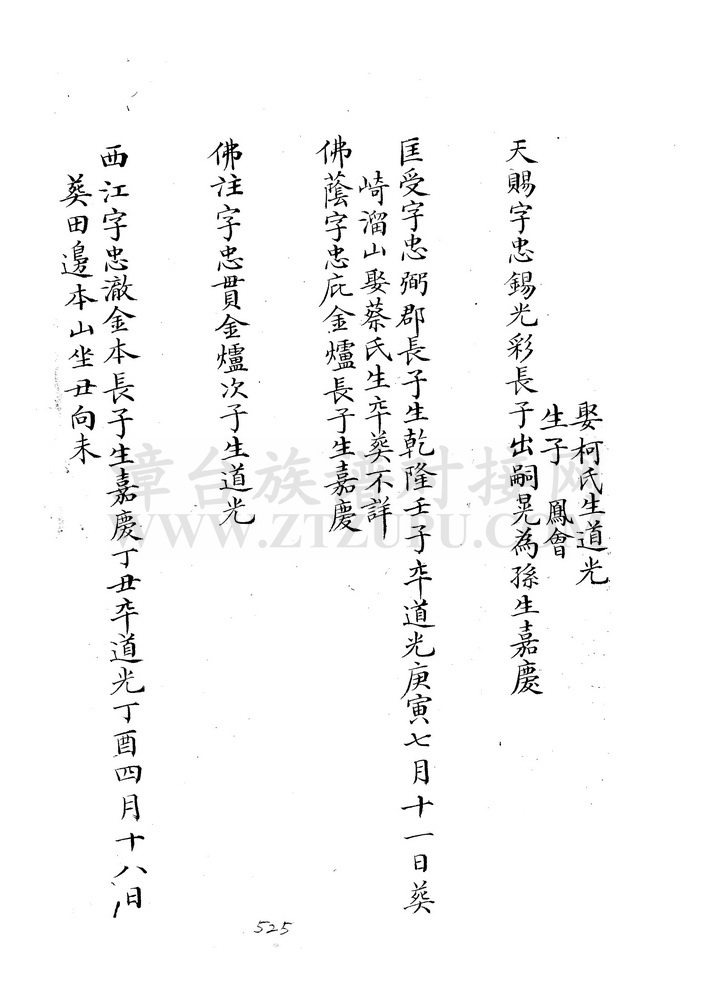 娶柯氏生道光
生子 鳳會
天賜字忠錫光彩長子出嗣晃為孫生嘉慶
匡受字忠弼郡長子生乾隆壬子卒道光庚寅七月十一日葬
崎溜山娶蔡氏生卒葬不詳
佛蔭字忠庇金爐長子生嘉慶
佛註字忠貫金爐次子生道光
西江字忠澈金本長子生嘉慶丁丑卒道光丁酉四月十八日
葬田邊本山坐丑向未
章台族譜對接网
WWW.ZTZUPU.COM
525